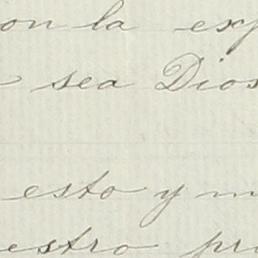 on la exp
sea Dios
esto y m
estro pr